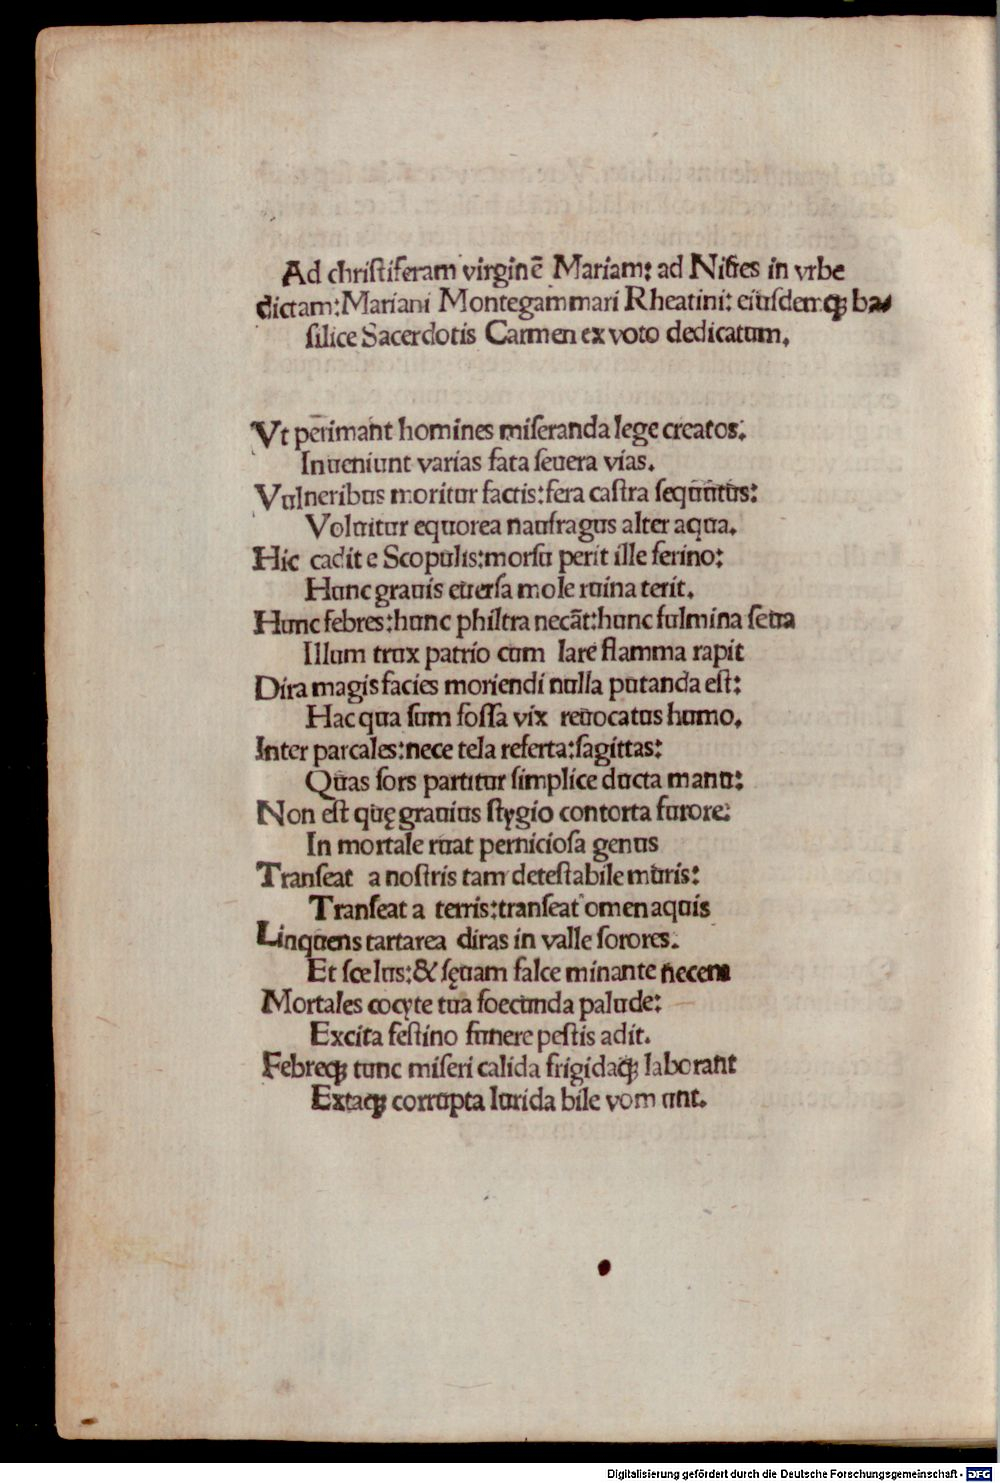 Ad christiferam virginē Mariam: ad Niues in vrbe
dictam: Mariani Montegammari Rheatini: eiusdemqȝ ba-
silice Sacerdotis Carmen ex voto dedicatum.
Vt perimant homines miseranda lege creatos:
Inueniunt varias fata seuera vias.
Vulneribus moritur factis: fera castra sequutus:
Voluitur equorea naufragus alter aqua.
Hic cadit e Scopulis: morsu perit ille ferino:
Hunc grauis euersa mole ruina terit.
Hunc febres: hunc philtra necāt: hunc fulmina seua
Illum trux patrio cum lare flamma rapit
Dira magis facies moriendi nulla putanda est:
Hac qua sum fossa vix reuocatus humo.
Inter parcales: nece tela referta: sagittas:
Quas sors partitur simplice ducta manu:
Non est quę grauius stygio contorta furore:
In mortale ruat perniciosa genus
Transeat a nostris tam detestabile muris:
Transeat a terris: transeat omen aquis
Linquens tartarea diras in valle sorores.
Et scelus: & sęuam falce minante necem
Mortales cocyte tua foecunda palude:
Excita festino funere pestis adit.
Febreqȝ tunc miseri calida frigidaqȝ laborant
Extaqȝ corrupta lurida bile vomunt.
Digitalisierung gefördert durch die Deutsche Forschungsgemeinschaft - DFG